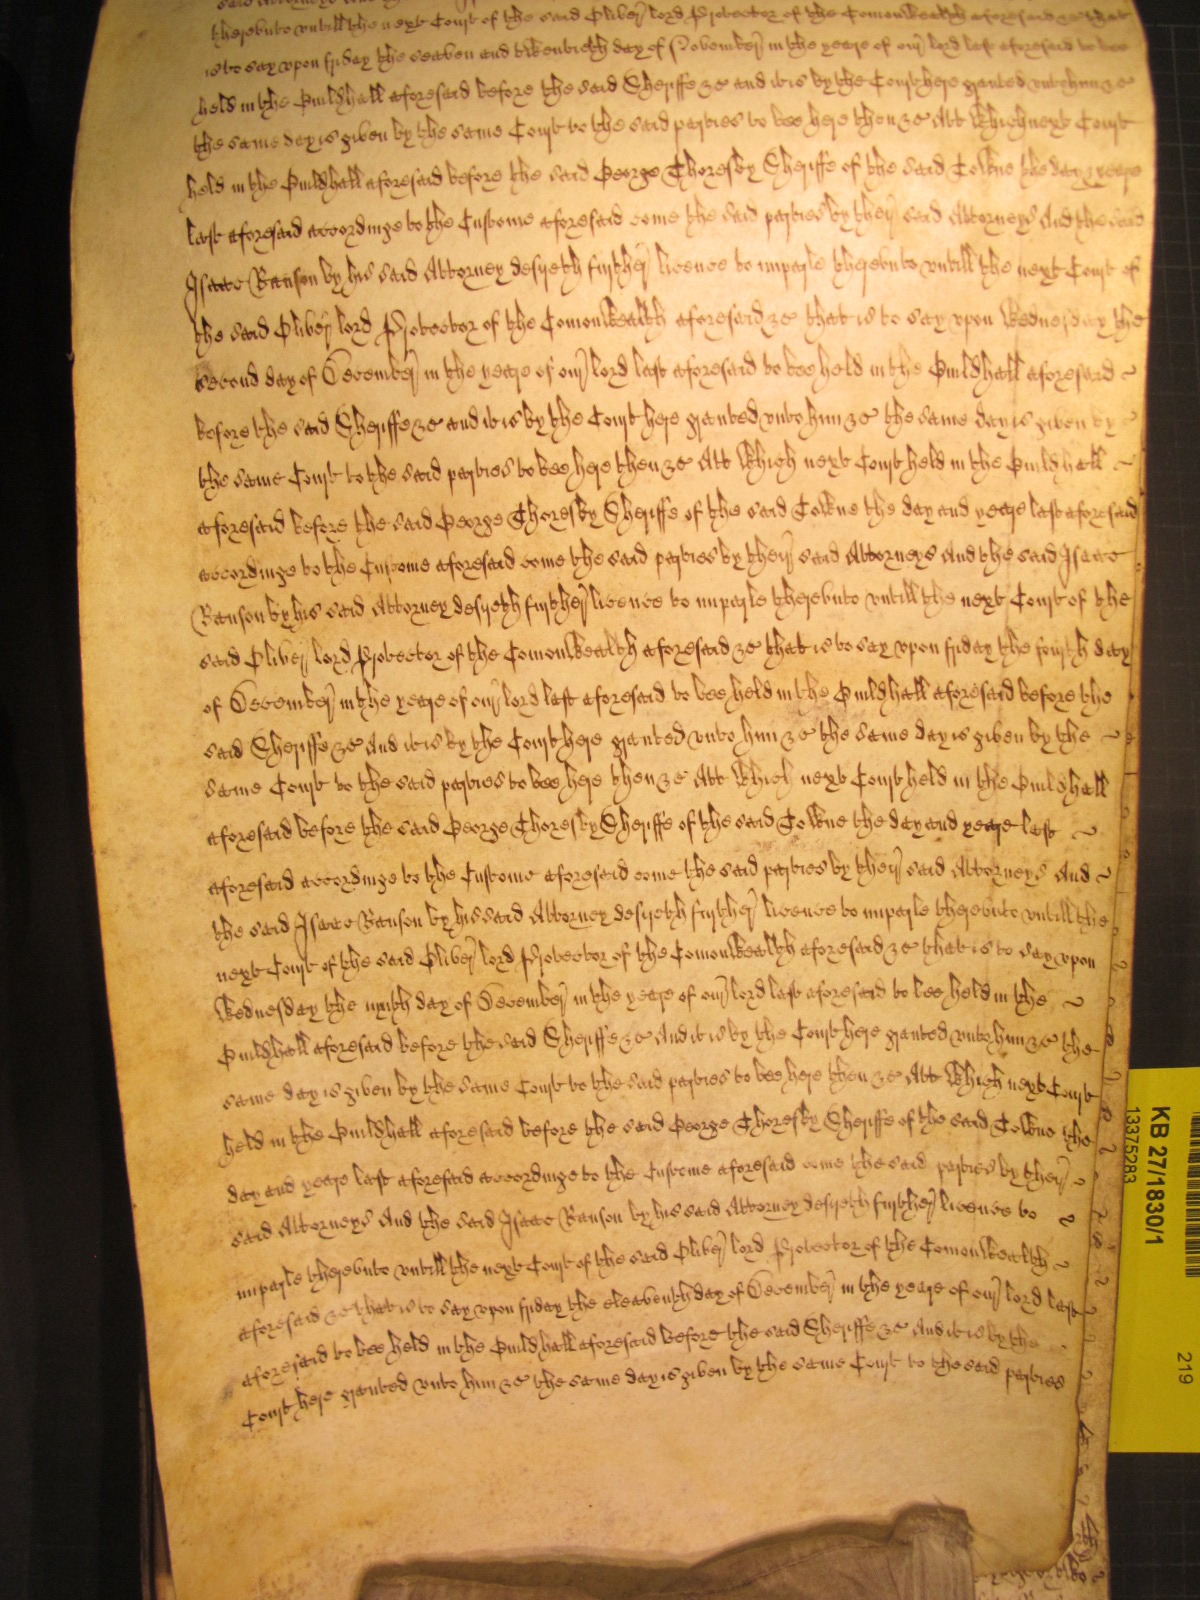 said Attorney
thereunto untill the next Court of the said Oliver lord Protector of the Comonwealth aforesaid &c that
is to say upon friday the seaven and twentieth day of November in the yeare of our lord last aforesaid to bee
held in the Guildhall aforesaid before the said Sheriffe &c and it is by the Court here granted unto him &c
the same day is given by the same Court to the said parties to bee here then &c Att which next Court
held in the Guildhall aforesaid before the said George Thoresby Sheriffe of the said Towne the day & yeare
last aforesaid accordinge to the Custome aforesaid come the said parties by their said Attorneys And the said
Isaac Ranson by his said Attorney desireth further licence to imparle thereunto untill the next Court of
the said Oliver lord Protector of the Comonwealth aforesaid &c that is to say upon Wednesday the
second day of December in the yeare of our lord last aforesaid to bee held in the Guildhall aforesaid
before the said Sheriffe &c and it is by the Court here granted unto him &c the same day is given by
the same Court to the said parties to bee here then &c Att which next Court held in the Guildhall
aforesaid before the said George Thoresby Sheriffe of the said Towne the day and yeare last aforesaid
accordinge to the Custome aforesaid come the said parties by their said Attorneys And the said Isaac
Ranson by his said Attorney desireth further licence to imparle thereunto untill the next Court of the
said Oliver lord Protector of the Comonwealth aforesaid &c that is to say upon friday the fourth day
of December in the yeare of our lord last aforesaid to bee held in the Guildhall aforesaid before the
said Sheriffe &c And it is by the Court here granted unto him &c the same day is given by the
same Court to the said parties to bee here then &c Att which next Court held in the Guildhall
aforesaid before the said George Thoresby Sheriffe of the said Towne the day and yeare last
aforesaid accordinge to the Custome aforesaid come the said parties by their said Attorneys And
the said Isaac Ranson by his said Attorney desireth further licence to imparle thereunto untill the
next Court of the said Oliver lord Protector of the Comonwealth aforesaid &c that is to say upon
Wednesday the nynth day of December in the yeare of our lord last aforesaid to bee held in the
Guildhall aforesaid before the said Sheriffe &c And it is by the Court here granted unto him &c the
same day is given by the same Court to the said parties to bee here then &c Att which next Court
held in the Guildhall aforesaid before the said George Thoresby Sheriffe of the said Towne the
day and yeare last aforesaid accordinge to the Custome aforesaid come the said parties by their
said Attorneys And the said Isaac Ranson by his said Attorney desireth further licence to
imparle thereunto untill the next Court of the said Oliver lord Protector of the Comonwealth
aforesaid &c that is to say upon friday the eleaventh day of December in the yeare of our lord last
aforesaid to bee held in the Guildhall aforesaid before the said Sheriffe &c And it is by the
Court here granted unto him &c the same day is given by the same Court to the said parties
KB 27/1830/1
13375283
219